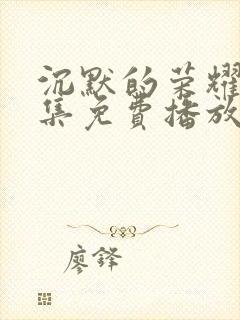 沉默的荣耀
集免费播放
廖锋